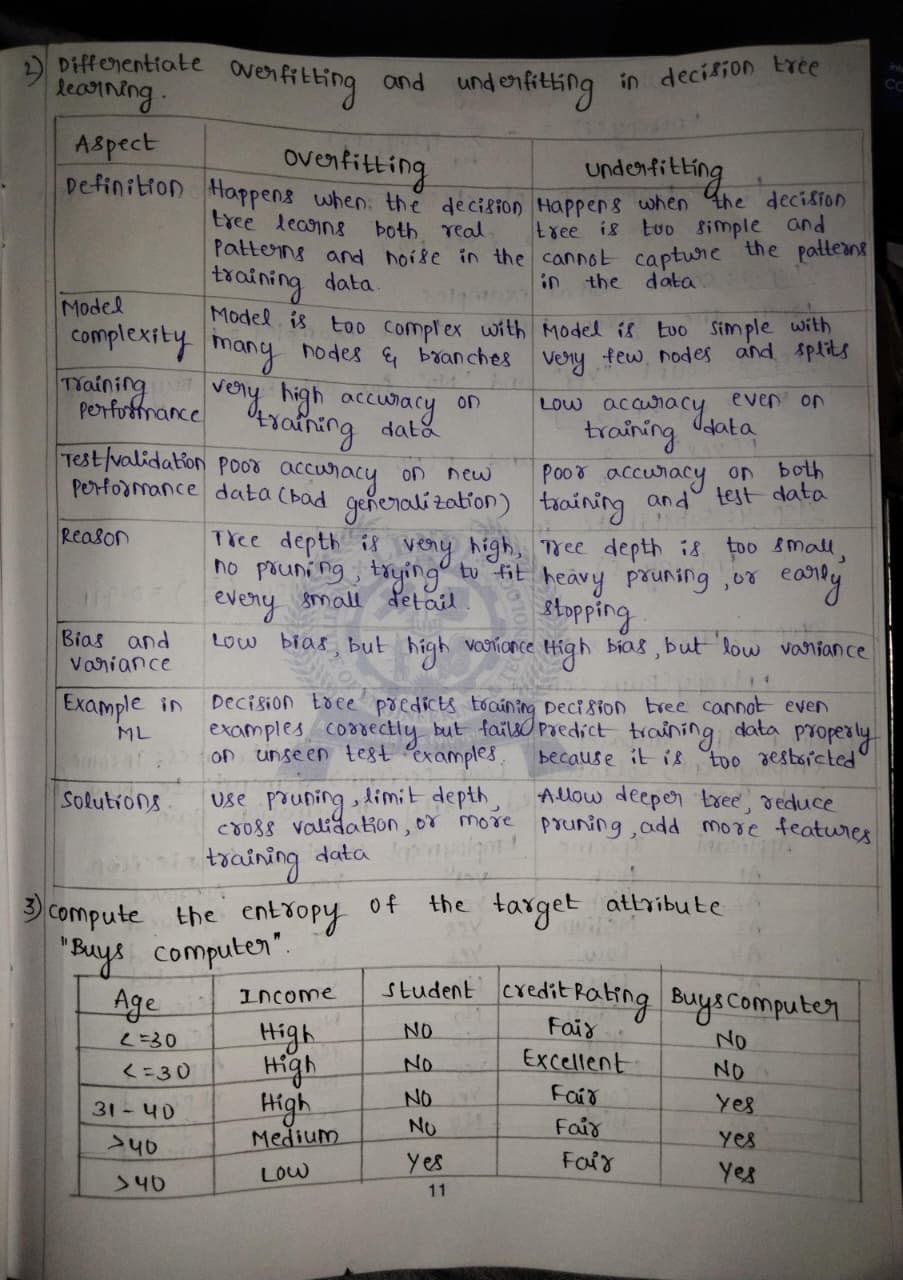 2) Differentiate overfitting and underfitting in decision tree
learning.
Aspect overfitting underfitting
Definition Happens when the decision tree learns both real Patterns and noise in the training data. Happens when the decision tree is too simple and cannot capture the patterns in the data
Model complexity Model is too complex with many nodes & branches Model is too simple with very few nodes and splits
Training performance very high accuracy on training data Low accuracy even on training data
Test/validation performance poor accuracy on new data (bad generalization) poor accuracy on both training and test data
Reason Tree depth is very high, no pruning, trying to fit every small detail. Tree depth is too small, heavy pruning, or early stopping
Bias and variance Low bias, but high variance High bias, but low variance
Example in ML Decision tree predicts training examples correctly but fails on unseen test examples. Decision tree cannot even predict training data properly because it is too restricted
Solutions use pruning, limit depth, cross validation, or more training data Allow deeper tree, reduce pruning, add more features
3) compute the entropy of the target attribute
"Buys computer".
Age Income Student credit Rating Buys computer
<=30 High NO Fair NO
<=30 High NO Excellent NO
31-40 High NO Fair Yes
>40 Medium NO Fair Yes
>40 Low Yes Fair Yes
11